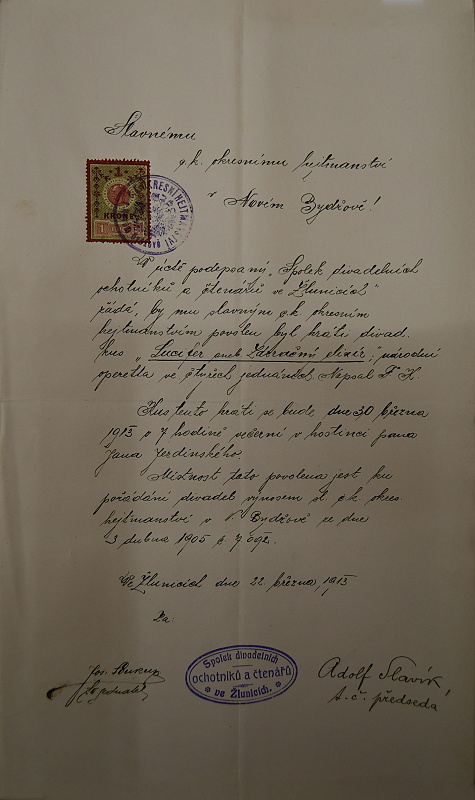 Slavnému
c.k. okresnímu hejtmanství
v Novém Bydžově!
1
KRONE
V úctě podepsaný „Spolek divadelních
ochotníků a čtenářů ve Žlunicích"
žádá, by mu slavným c.k. okresním
hejtmanstvím povolen byl hráti divad.
kus „Lucifer aneb Zázračný elixír", národní
operetta ve čtyřech jednáních. Napsal F. H
Kus tento hráti se bude dne 30 března
1913 o 7 hodině večerní v hostinci pana
Jana Jerdinského.
Místnost tato povolena jest ku
pořádání divadel výnosem sl. c.k. okres.
hejtmanství v N. Bydžově ze dne
3 dubna 1905 č 7.092.
Ve Žlunicích dne 22. března 1913
Za:
Jos.
Spolek divadelních
ochotníků a čtenářů
ve Žlunicích.
Adolf Slavík,
t.č. předseda